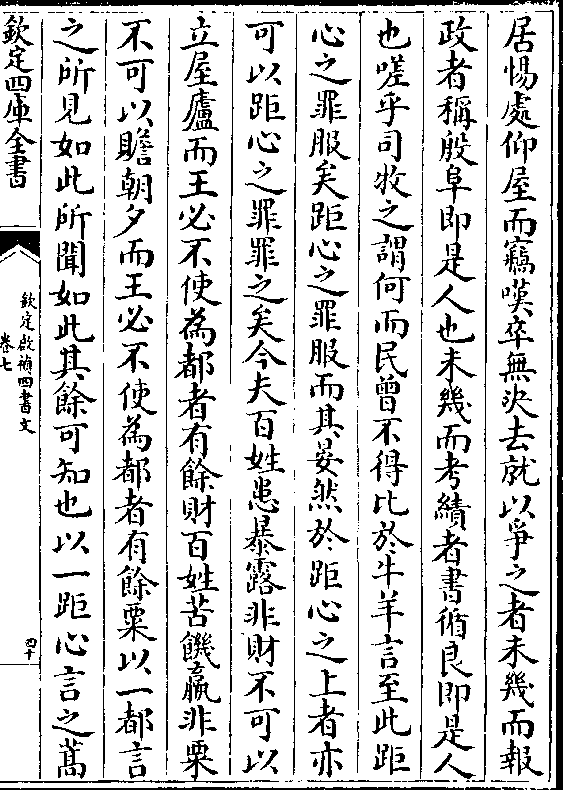 居惕處仰屋而竊嘆卒無決去就以爭之者未幾而報
政者稱殷阜即是人也未幾而考績者書循良即是人
也嗟乎司牧之謂何而民曾不得比於牛羊言至此距
心之罪服矣距心之罪服而其晏然於距心之上者亦
可以距心之罪罪之矣今夫百姓患暴露非財不可以
立屋廬而王必不使為都者有餘財百姓苦饑羸非粟
不可以贍朝夕而王必不使為都者有餘粟以一都言
之所見如此所聞如此其餘可知也以一距心言之蒿
欽定四庫全書
欽定啟禎四書文
卷七
四十